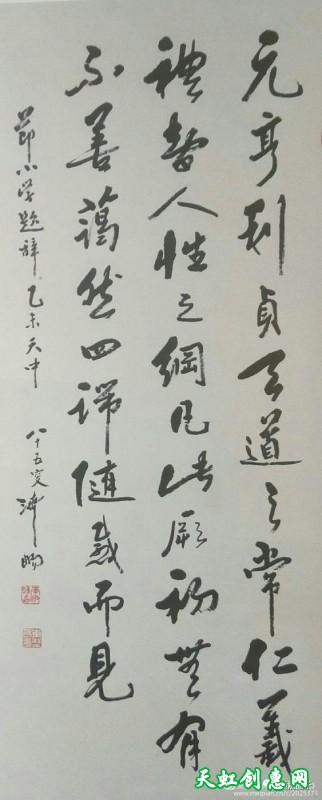 元亨利貞天道之常仁義
禮智人性之綱凡此厥初無有
不善藹然四端隨感而見
節小学題辞 乙未天中 八十五叟
天虹创意网